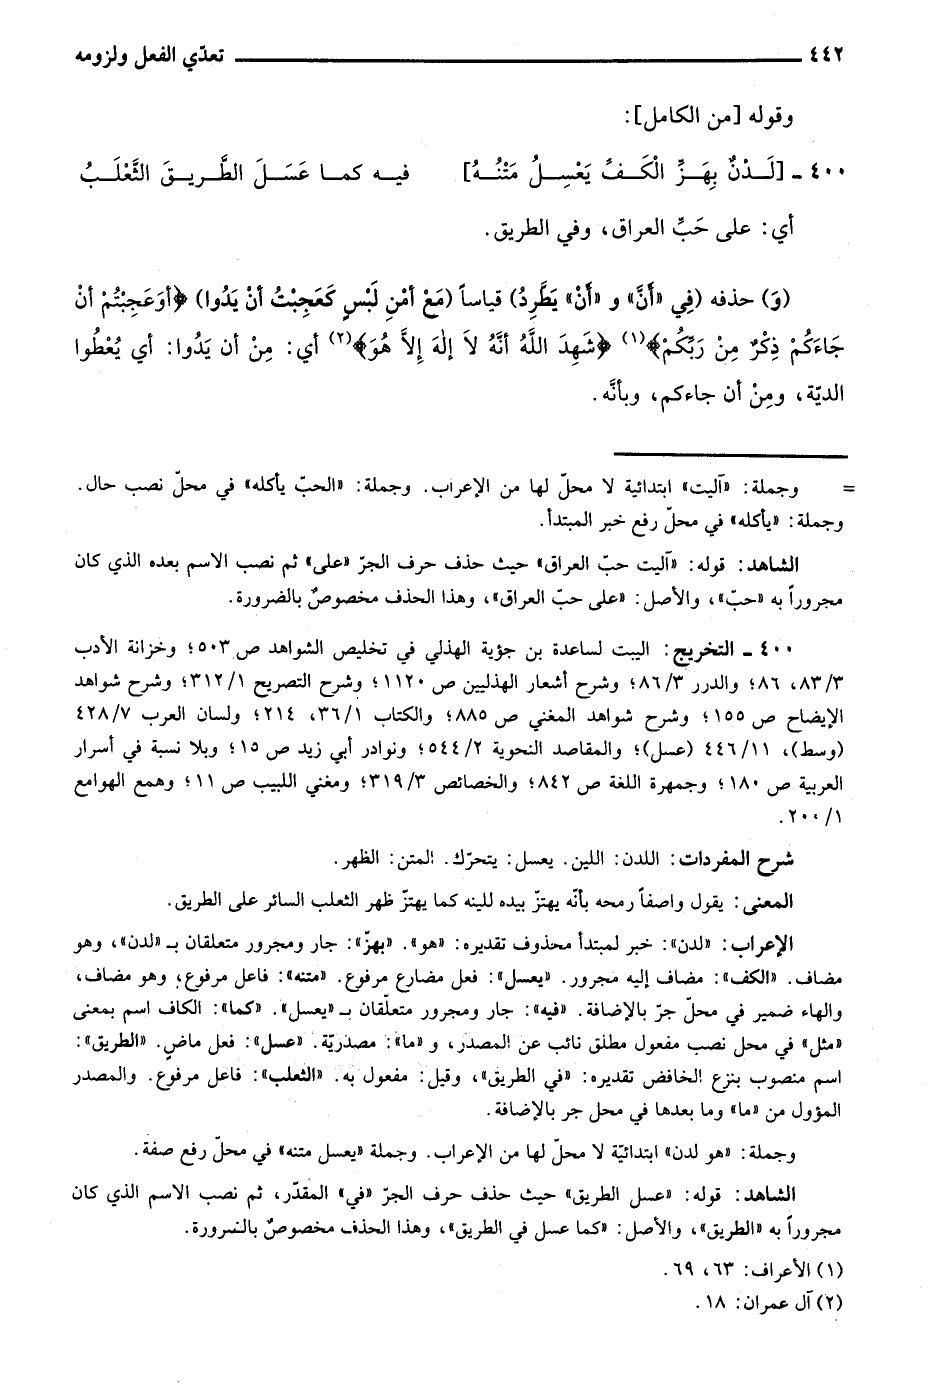 ٤٤٢ تعدّي الفعل ولزومه
وقوله [من الكامل]:
٤٠٠ ـ [لَدْنٌ بِهَزِّ الْكَفِّ يَعْسِلُ مَتْنُهُ] فيه كما عَسَلَ الطَّريقَ الثَّعْلَبُ
أي: على حَبِّ العراق، وفي الطريق.
(وَ) حذفه (فِي «أَنَّ» و «أَنْ» يَطَّرِدُ) قياساً (مَعْ أَمْنِ لَبْسٍ كَعَجِبْتُ أنْ يَدُوا) ﴿أوَعَجِبْتُمْ أنْ
جَاءَكُمْ ذِكْرٌ مِنْ رَبِّكُمْ﴾(١) ﴿شَهِدَ اللَّهُ أنَّهُ لاَ إلٰهَ إلاَّ هُوَ﴾(٢) أي: مِنْ أن يَدُوا: أي يُعْطُوا
الديّة، ومِنْ أن جاءكم، وبأنَّه.
= وجملة: «آليت» ابتدائية لا محلّ لها من الإعراب. وجملة: «الحبّ يأكله» في محلّ نصب حال.
وجملة: «يأكله» في محلّ رفع خبر المبتدأ.
الشاهد: قوله: «آليت حبّ العراق» حيث حذف حرف الجرّ «على» ثم نصب الاسم بعده الذي كان
مجروراً به «حبّ»، والأصل: «على حبّ العراق»، وهذا الحذف مخصوصٌ بالضرورة.
٤٠٠ ـ التخريج: البيت لساعدة بن جؤية الهذلي في تخليص الشواهد ص ٥٠٣؛ وخزانة الأدب
٨٣/٣، ٨٦؛ والدرر ٨٦/٣؛ وشرح أشعار الهذليين ص ١١٢٠؛ وشرح التصريح ٣١٢/١؛ وشرح شواهد
الإيضاح ص ١٥٥؛ وشرح شواهد المغني ص ٨٨٥؛ والكتاب ٣٦/١، ٢١٤؛ ولسان العرب ٤٢٨/٧
(وسط)، ٤٤٦/١١ (عسل)؛ والمقاصد النحوية ٥٤٤/٢؛ ونوادر أبي زيد ص ١٥؛ وبلا نسبة في أسرار
العربية ص ١٨٠؛ وجمهرة اللغة ص ٨٤٢؛ والخصائص ٣١٩/٣؛ ومغني اللبيب ص ١١؛ وهمع الهوامع
٢٠٠/١.
شرح المفردات: اللدن: اللين. يعسل: يتحرّك. المتن: الظهر.
المعنى: يقول واصفاً رمحه بأنّه يهتزّ بيده للينه كما يهتزّ ظهر الثعلب السائر على الطريق.
الإعراب: «لدن»: خبر لمبتدأ محذوف تقديره: «هو». «بهزّ»: جار ومجرور متعلقان بـ «لدن»، وهو
مضاف. «الكف»: مضاف إليه مجرور. «يعسل»: فعل مضارع مرفوع. «متنه»: فاعل مرفوع، وهو مضاف،
والهاء ضمير في محلّ جرّ بالإضافة. «فيه»: جار ومجرور متعلّقان بـ «يعسل». «كما»: الكاف اسم بمعنى
«مثل» في محل نصب مفعول مطلق نائب عن المصدر، و «ما»: مصدريّة. «عسل»: فعل ماضٍ. «الطريق»:
اسم منصوب بنزع الخافض تقديره: «في الطريق»، وقيل: مفعول به. «الثعلب»: فاعل مرفوع. والمصدر
المؤول من «ما» وما بعدها في محل جر بالإضافة.
وجملة: «هو لدن» ابتدائيّة لا محلّ لها من الإعراب. وجملة «يعسل متنه» في محلّ رفع صفة.
الشاهد: قوله: «عسل الطريق» حيث حذف حرف الجرّ «في» المقدّر، ثم نصب الاسم الذي كان
مجروراً به «الطريق»، والأصل: «كما عسل في الطريق»، وهذا الحذف مخصوصٌ بالضرورة.
(١) الأعراف: ٦٣، ٦٩.
(٢) آل عمران: ١٨.